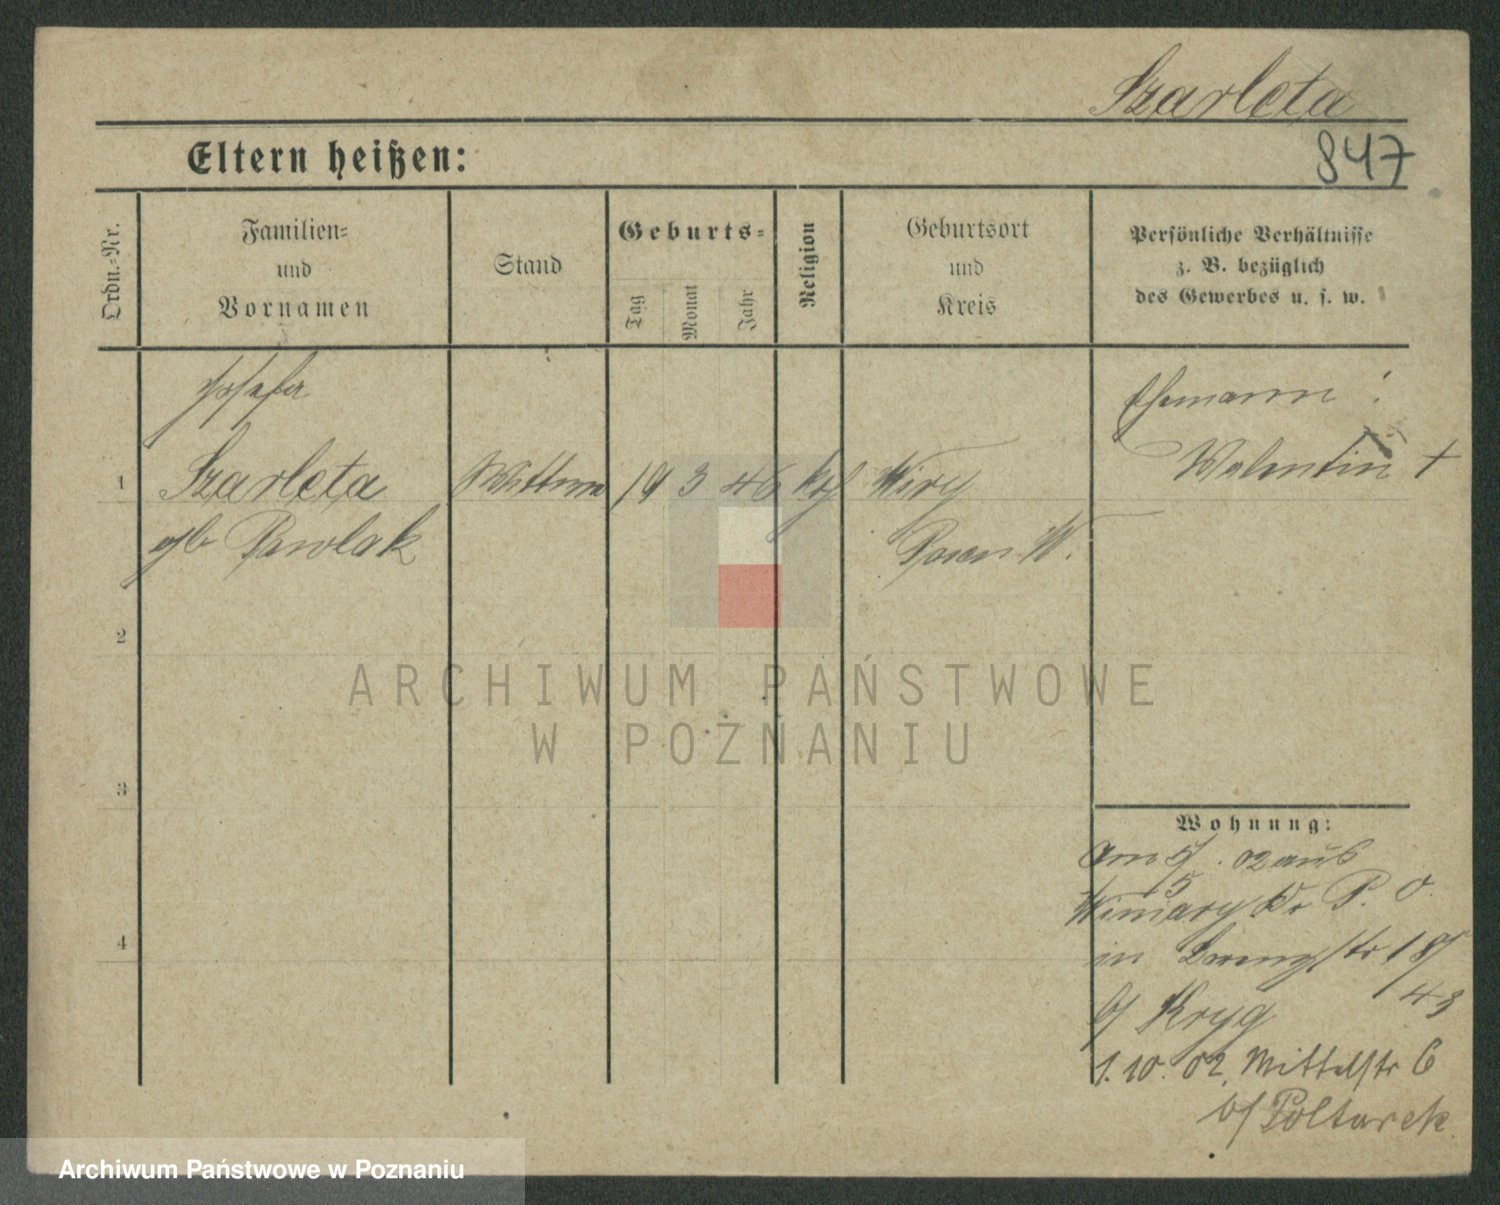 Szarleta
847
Eltern heißen:
Ordn.-Nr.
Familien-
und
Vornamen
Stand
Geburts-
Tag
Monat
Jahr
Religion
Geburtsort
und
Kreis
Persönliche Verhältnisse
z. B. bezüglich
des Gewerbes u. s. w.
Josefa
Ehemann :
Valentin +
1 Szarleta Wittwe 19 3 46 kth Wiry
geb Pawlak Posen W.
2
3
4
ARCHIWUM PAŃSTWOWE
W POZNANIU
Wohnung:
Am 5/5. 02 aus
Winiary Kr P. O.
in str 18/
43
b/ Kryg
1. 10. 02. Mittelstr 6
b/ Poltarek
Archiwum Państwowe w Poznaniu